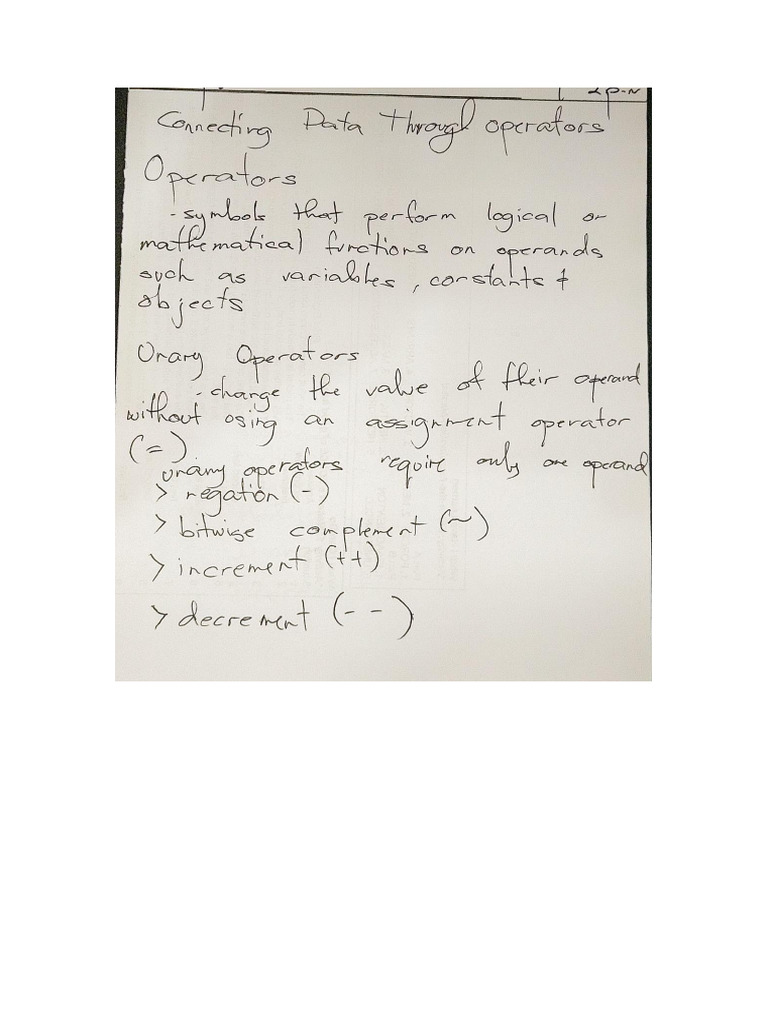 Connecting Data Through operators
Operators
- symbols that perform logical or
mathematical functions on operands
such as variables, constants &
objects
Unary Operators
- change the value of their operand
without using an assignment operator
(=)
unary operators require only one operand
> negation (-)
> bitwise complement (~)
> increment (++)
> decrement (--)